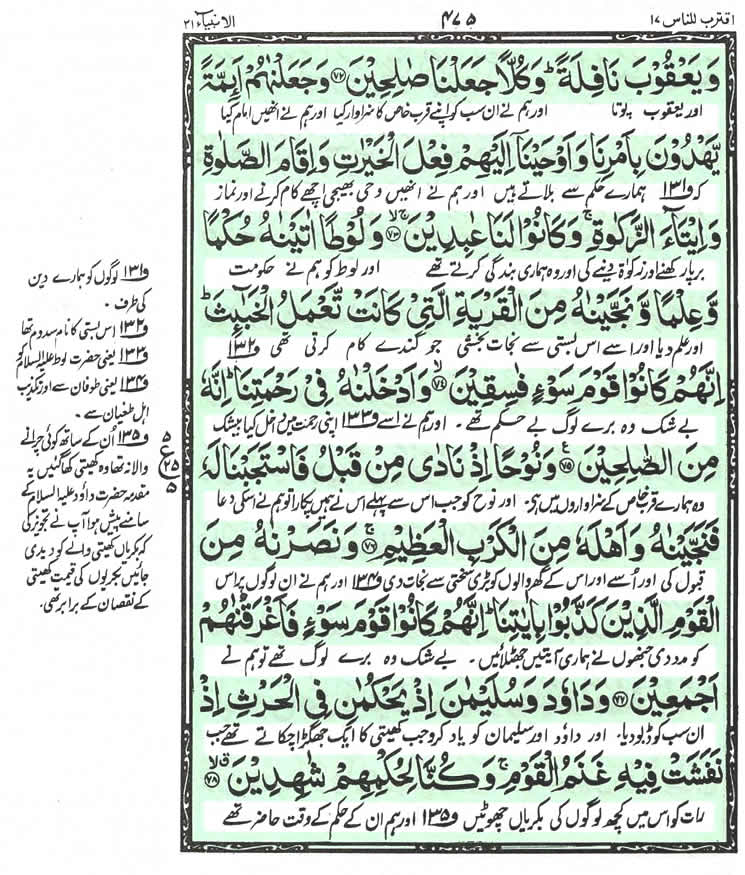 اقترب للناس ١٧
٤٧٥
الانبیآء ٢١
وَيَعْقُوْبَ نَافِلَةً ؕ وَكُلًّا جَعَلْنَا صٰلِحِيْنَ ﴿۷۲﴾ وَجَعَلْنٰهُمْ اَىِٕمَّةً
اور یعقوب پوتا اور ہم نے ان سب کو اپنے قرب خاص کا سزاوار کیا اور ہم نے انھیں امام کیا
يَّهْدُوْنَ بِاَمْرِنَا وَاَوْحَيْنَاۤ اِلَيْهِمْ فِعْلَ الْخَيْرٰتِ وَاِقَامَ الصَّلٰوةِ
کہ ف۱۳۱ ہمارے حکم سے بلاتے ہیں اور ہم نے انھیں وحی بھیجی اچھے کام کرنے اور نماز
وَاِيْتَآءَ الزَّكٰوةِ ۚ وَكَانُوْا لَنَا عٰبِدِيْنَ ﴿۷۳﴾ ۙۚ وَلُوْطًا اٰتَيْنٰهُ حُكْمًا
برپا رکھنے اور زکوٰۃ دینے کی اور وہ ہماری بندگی کرتے تھے اور لوط کو ہم نے حکومت
وَّعِلْمًا وَّنَجَّيْنٰهُ مِنَ الْقَرْيَةِ الَّتِيْ كَانَتْ تَّعْمَلُ الْخَبٰٓىِٕثَ ؕ
اور علم دیا اور اسے اس بستی سے نجات بخشی جو گندے کام کرتی تھی ف۱۳۲
اِنَّهُمْ كَانُوْا قَوْمَ سَوْءٍ فٰسِقِيْنَ ﴿۷۴﴾ ۙ وَاَدْخَلْنٰهُ فِيْ رَحْمَتِنَا ؕ اِنَّهٗ
بے شک وہ برے لوگ بے حکم تھے ۔ اور ہم نے اسے ف۱۳۳ اپنی رحمت میں داخل کیا بیشک
مِنَ الصّٰلِحِيْنَ ﴿۷۵﴾ ع وَنُوْحًا اِذْ نَادٰى مِنْ قَبْلُ فَاسْتَجَبْنَا لَهٗ
وہ ہمارے قرب خاص کے سزاواروں میں ہی ۔ اور نوح کو جب اس سے پہلے اس نے ہمیں پکارا تو ہم نے اسکی دعا
فَنَجَّيْنٰهُ وَاَهْلَهٗ مِنَ الْكَرْبِ الْعَظِيْمِ ﴿۷۶﴾ ۚ وَنَصَرْنٰهُ مِنَ
قبول کی اور اُسے اور اس کے گھر والوں کو بڑی سختی سے نجات دی ف۱۳۴ اور ہم نے ان لوگوں پر اس
الْقَوْمِ الَّذِيْنَ كَذَّبُوْا بِاٰيٰتِنَا ؕ اِنَّهُمْ كَانُوْا قَوْمَ سَوْءٍ فَاَغْرَقْنٰهُمْ
کو مدد دی جنھوں نے ہماری آیتیں جھٹلائیں ۔ بے شک وہ برے لوگ تھے تو ہم نے
اَجْمَعِيْنَ ﴿۷۷﴾ وَدَاوٗدَ وَسُلَيْمٰنَ اِذْ يَحْكُمٰنِ فِي الْحَرْثِ اِذْ
ان سب کو ڈبو دیا ۔ اور داؤد اور سلیمان کو یاد کرو جب کھیتی کا ایک جھگڑا چکاتے تھے جب
نَفَشَتْ فِيْهِ غَنَمُ الْقَوْمِ ۚ وَكُنَّا لِحُكْمِهِمْ شٰهِدِيْنَ ﴿۷۸﴾ ق ۙ
رات کو اس میں کچھ لوگوں کی بکریاں چھوٹیں ف۱۳۵ اور ہم ان کے حکم کے وقت حاضر تھے
ف۱۳۱ لوگوں کو ہمارے دین
کی طرف ۔
ف۱۳۲ اس بستی کا نام سدوم تھا
ف۱۳۳ یعنی حضرت لوط علیہ السلام کو
ف۱۳۴ یعنی طوفان سے اور تکذیب
اہل طغیان سے ۔
ف۱۳۵ اُن کے ساتھ کوئی چرانے
والا نہ تھا وہ کھیتی کھا گئیں یہ
مقدمہ حضرت داؤد علیہ السلام کے
سامنے پیش ہوا آپ نے تجویز کی
کہ بکریاں کھیتی والے کو دیدی
جائیں بکریوں کی قیمت کھیتی
کے نقصان کے برابر تھی ۔
۵
ع
25
۵